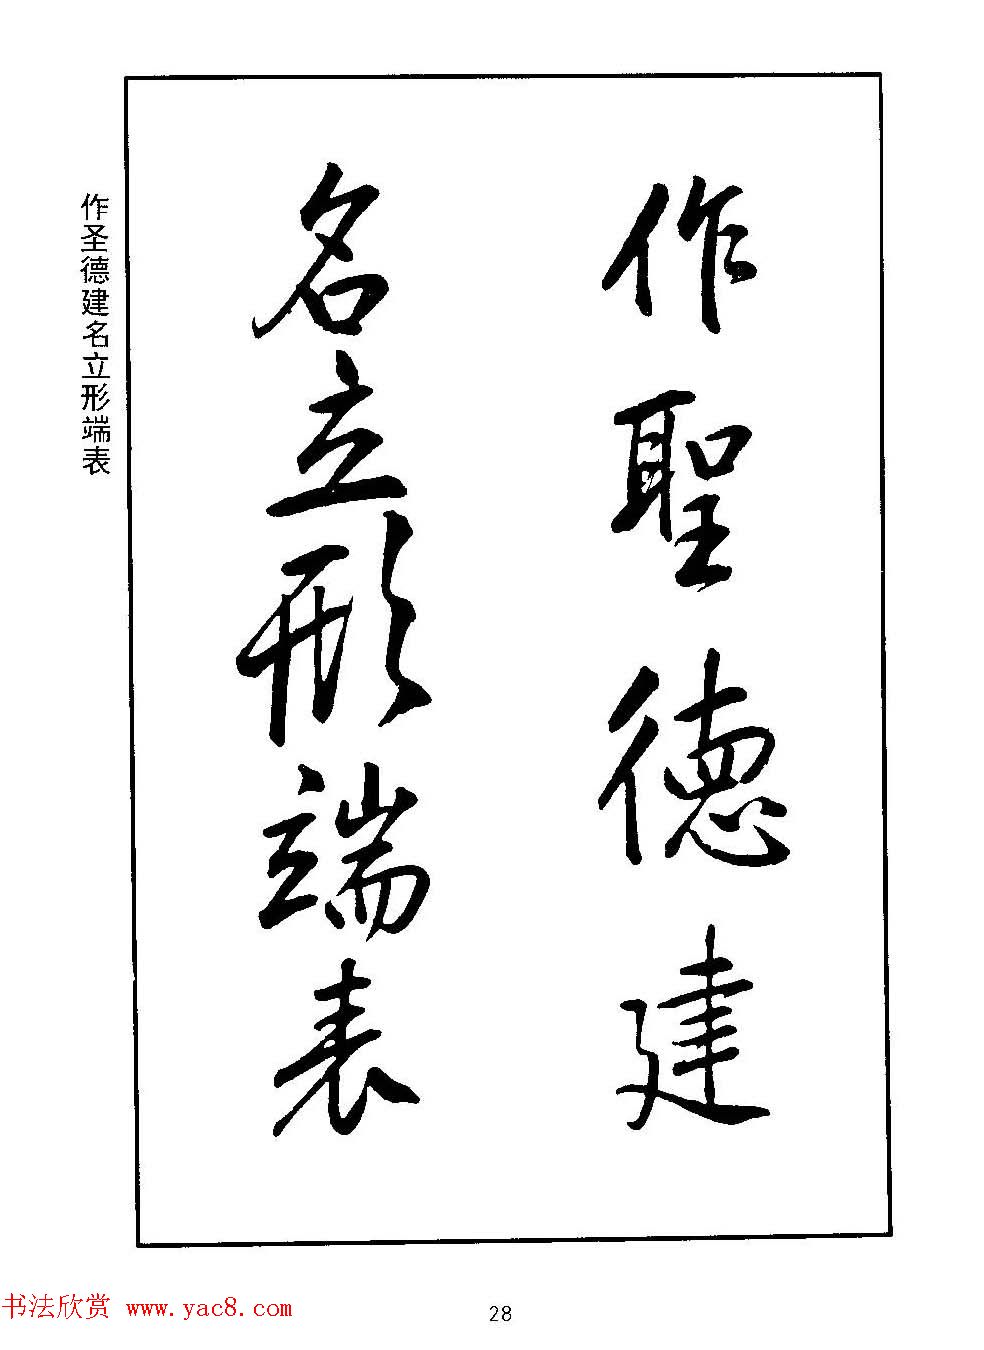 作聖德建
名立形端表
作圣德建名立形端表
书法欣赏 www.yac8.com
28